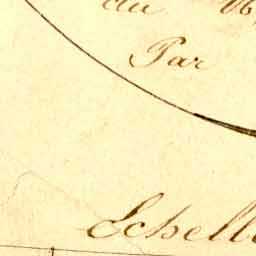 du
Par
Echell